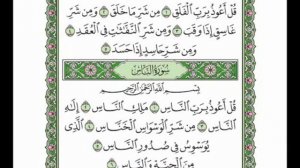 قُلْ أَعُوذُ بِرَبِّ ٱلْفَلَقِ ۝ مِن شَرِّ مَا خَلَقَ ۝ وَمِن شَرِّ
غَاسِقٍ إِذَا وَقَبَ ۝ وَمِن شَرِّ ٱلنَّفَّٰثَٰتِ فِى ٱلْعُقَدِ ۝
وَمِن شَرِّ حَاسِدٍ إِذَا حَسَدَ ۝
سُورَةُ النَّاسِ
بِسْمِ ٱللَّهِ ٱلرَّحْمَٰنِ ٱلرَّحِيمِ
قُلْ أَعُوذُ بِرَبِّ ٱلنَّاسِ ۝ مَلِكِ ٱلنَّاسِ ۝ إِلَٰهِ
ٱلنَّاسِ ۝ مِن شَرِّ ٱلْوَسْوَاسِ ٱلْخَنَّاسِ ۝ ٱلَّذِى
يُوَسْوِسُ فِى صُدُورِ ٱلنَّاسِ ۝
مِنَ ٱلْجِنَّةِ وَٱلنَّاسِ ۝